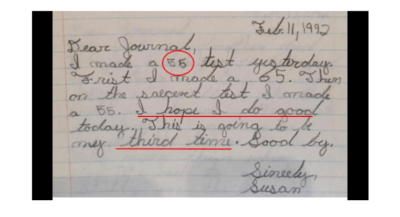 Feb. 11, 1992
Dear Journal,
I made a 55 test yesterday.
Frist I made a 65. Then
on the sacent test I made
a 55. I hope I do good
today. This is going to be
my third time. Good by.
Sineely,
Susan